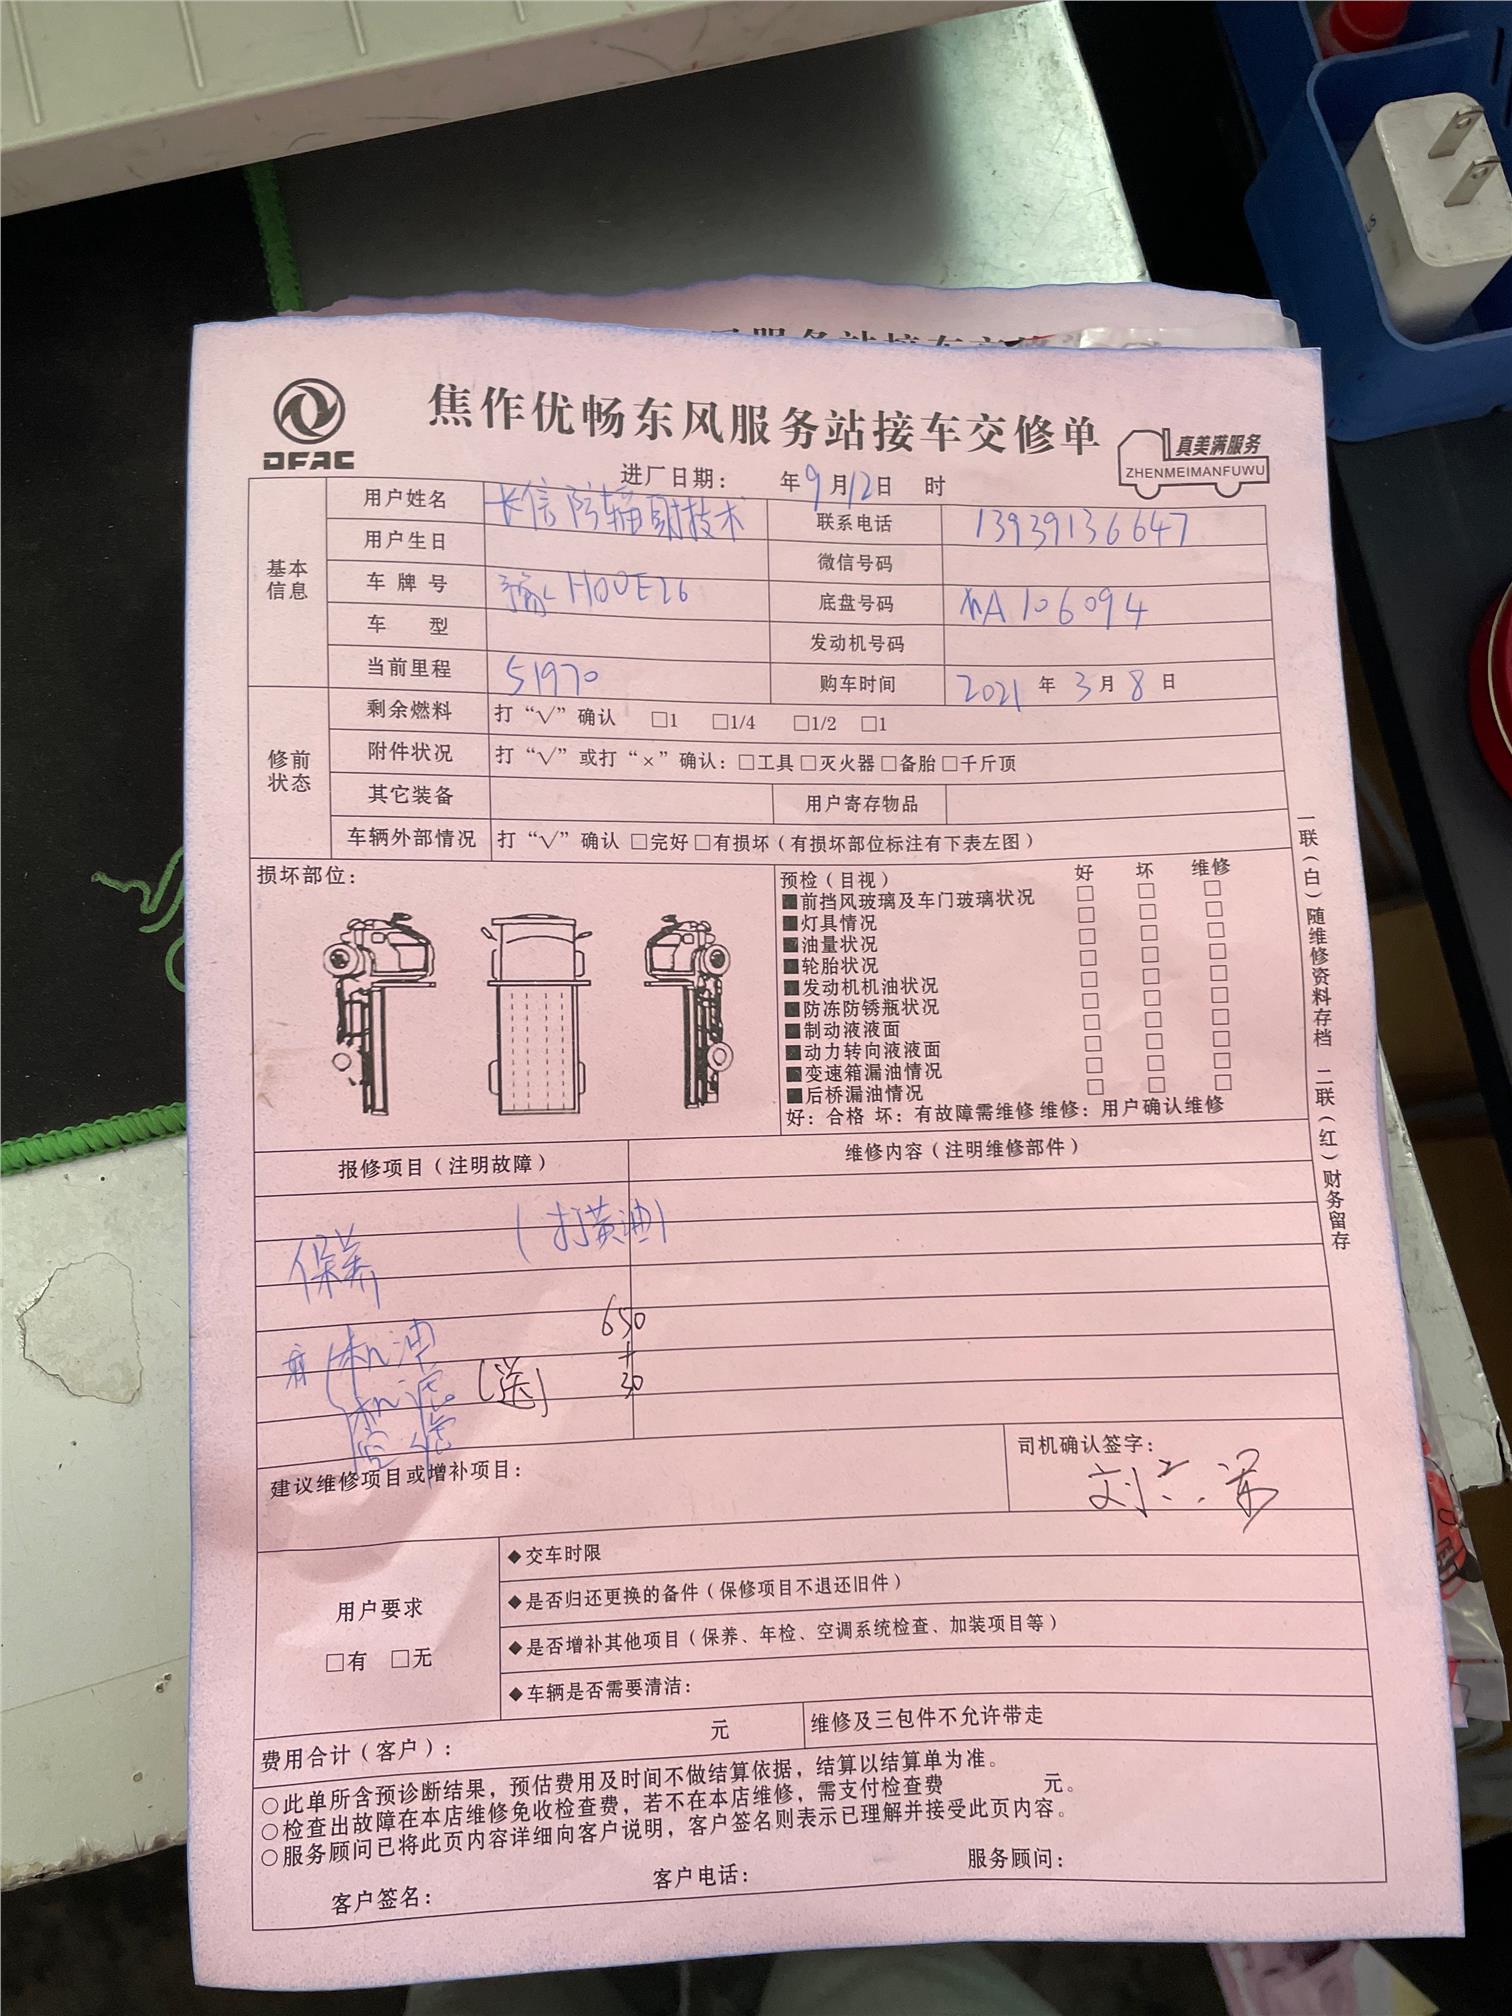 焦作优畅东风服务站接车交修单
DFAC
真美满服务
ZHENMEIMANFUWU
进厂日期： 年9月12日 时
基本信息
用户姓名 长信防辐射技术 联系电话 13939136647
用户生日 微信号码
车牌号 豫H00E26 底盘号码 A106094
车型 发动机号码
当前里程 51970 购车时间 2021年3月8日
修前状态
剩余燃料 打“√”确认 □1 □1/4 □1/2 □1
附件状况 打“√”或打“×”确认：□工具□灭火器□备胎□千斤顶
其它装备 用户寄存物品
车辆外部情况 打“√”确认 □完好□有损坏（有损坏部位标注有下表左图）
损坏部位：
预检（目视） 好 坏 维修
■前挡风玻璃及车门玻璃状况 □ □ □
■灯具情况 □ □ □
■油量状况 □ □ □
■轮胎状况 □ □ □
■发动机机油状况 □ □ □
■防冻防锈瓶状况 □ □ □
■制动液液面 □ □ □
■动力转向液液面 □ □ □
■变速箱漏油情况 □ □ □
■后桥漏油情况 □ □ □
好：合格 坏：有故障需维修 维修：用户确认维修
一联（白）随维修资料存档 二联（红）财务留存
报修项目（注明故障） 维修内容（注明维修部件）
保养 （打黄油）
机油 650
+
机滤 （送） 30
建议维修项目或增补项目：
司机确认签字：
用户要求
□有 □无
◆交车时限
◆是否归还更换的备件（保修项目不退还旧件）
◆是否增补其他项目（保养、年检、空调系统检查、加装项目等）
◆车辆是否需要清洁：
费用合计（客户）： 元 维修及三包件不允许带走
○此单所含预诊断结果，预估费用及时间不做结算依据，结算以结算单为准。
○检查出故障在本店维修免收检查费，若不在本店维修，需支付检查费 元。
○服务顾问已将此页内容详细向客户说明，客户签名则表示已理解并接受此页内容。
客户签名： 客户电话： 服务顾问：